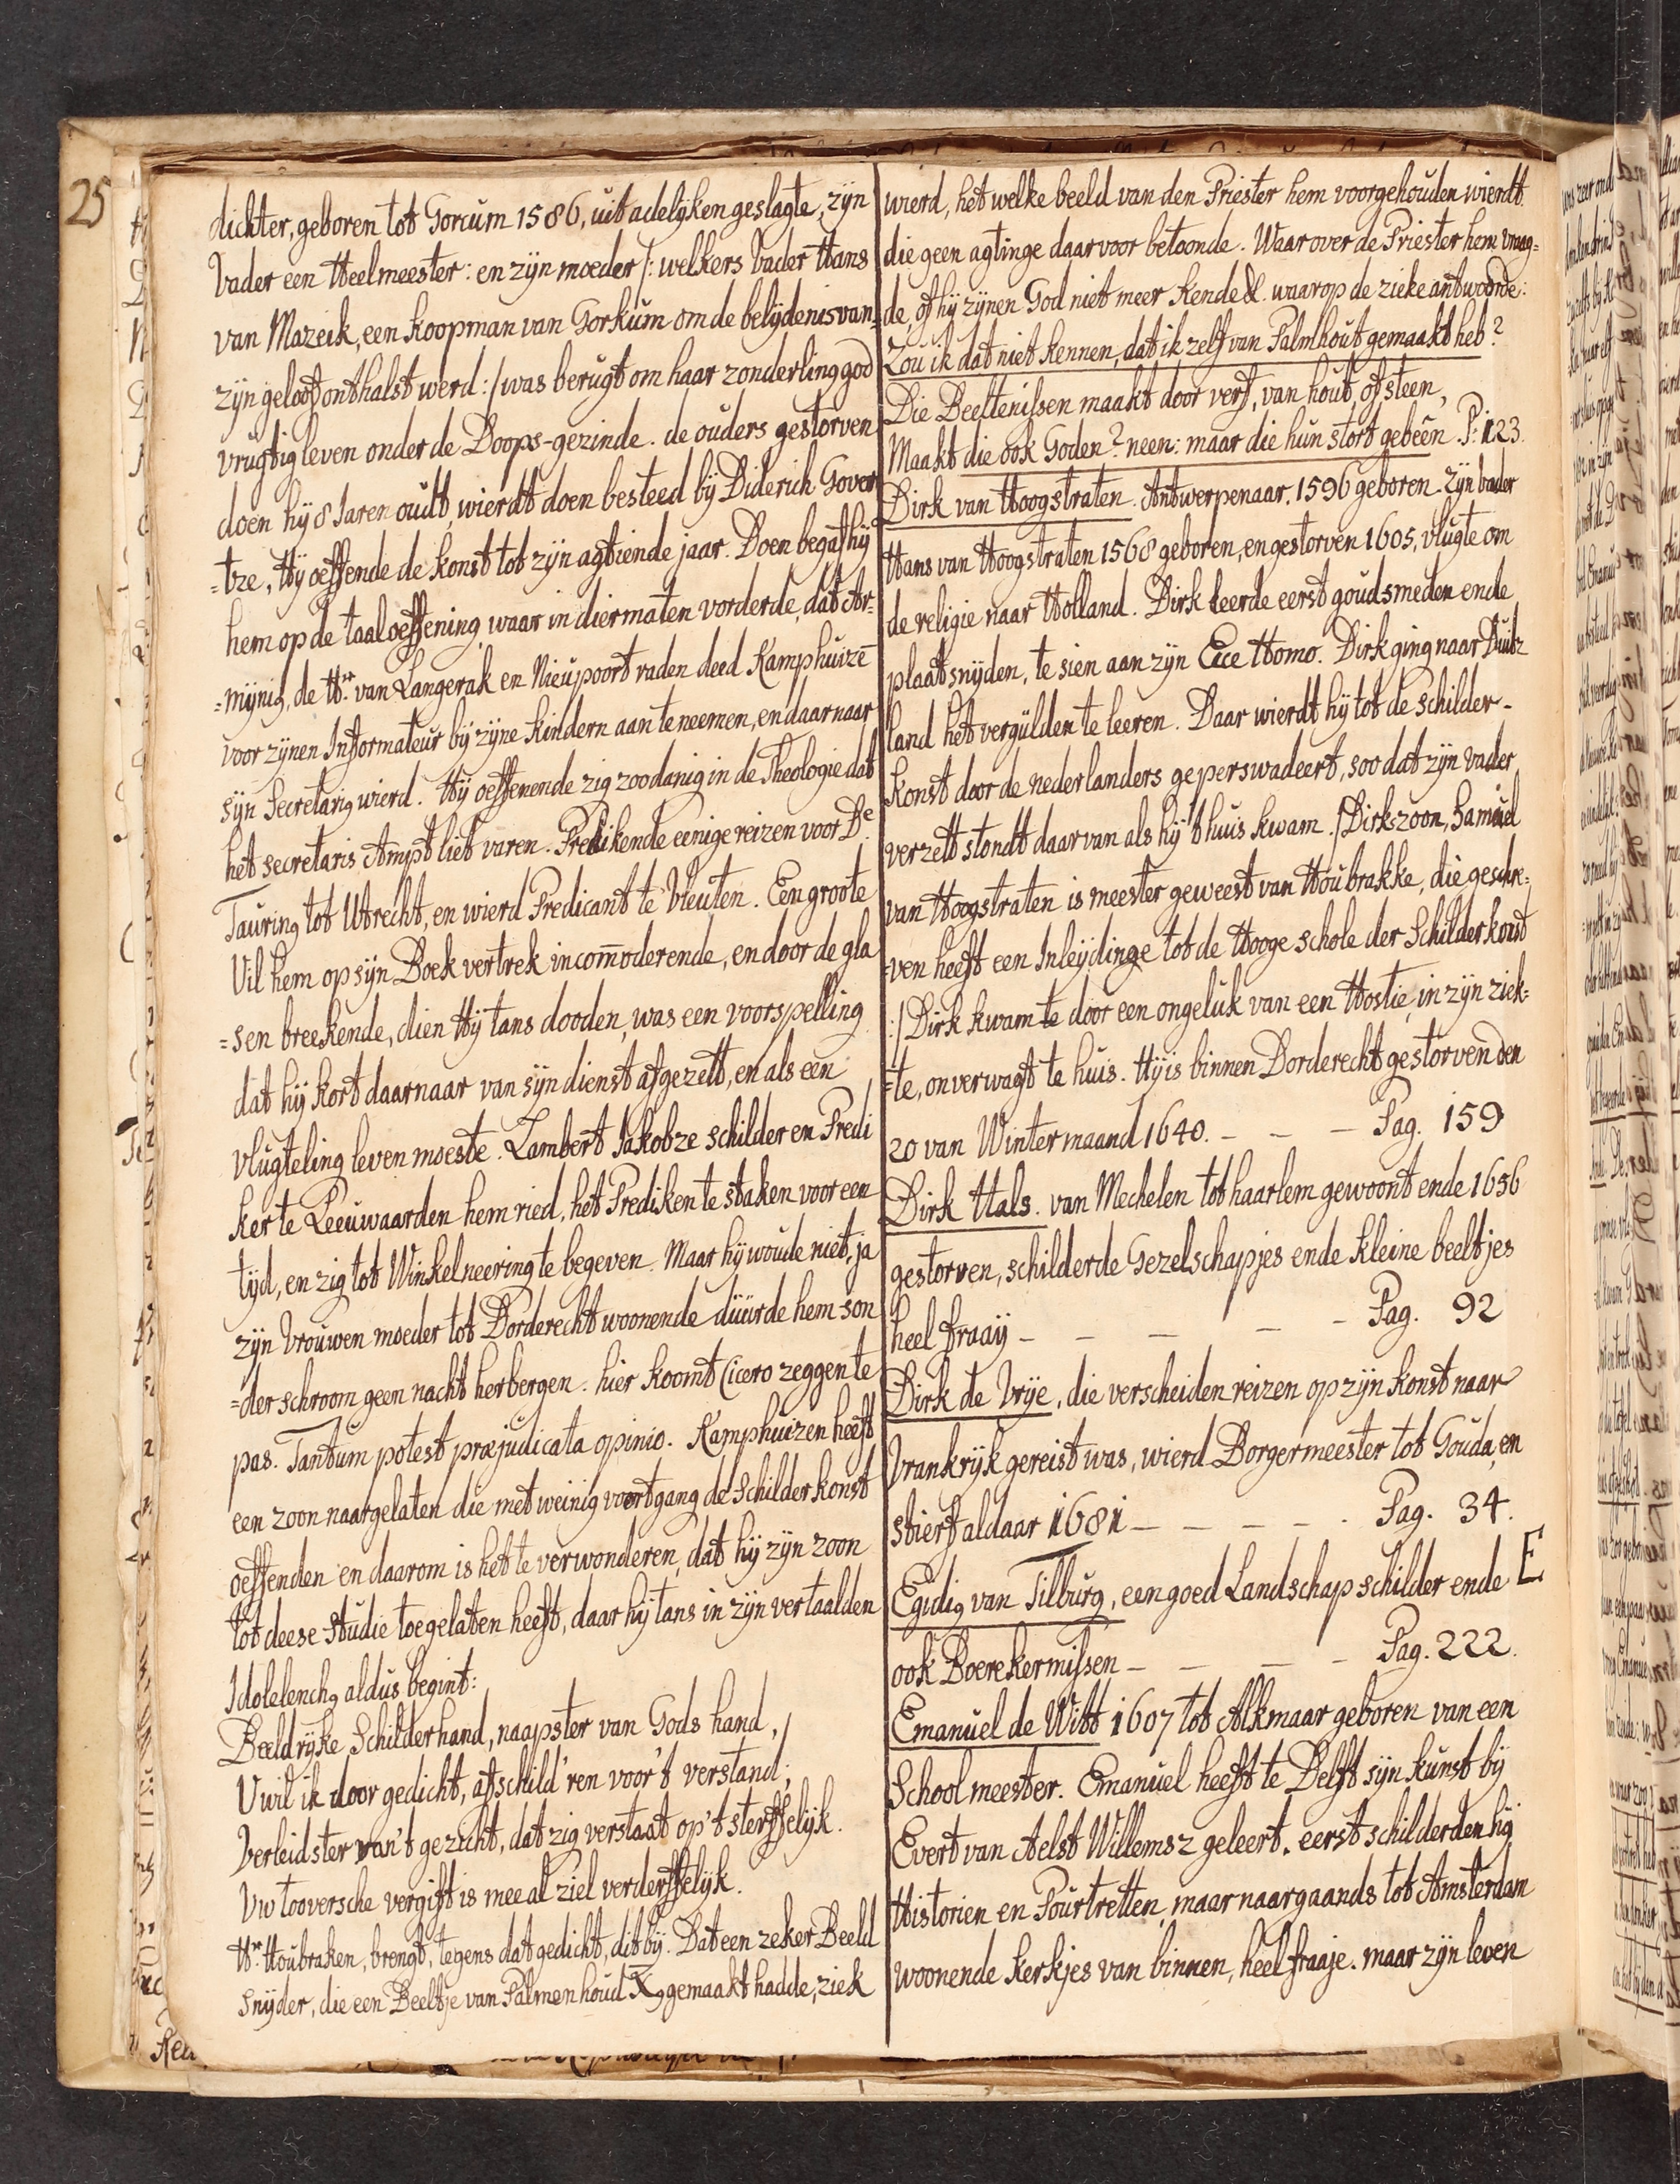 25
dichter, geboren tot Gorcum 1586, uit adelyken geslagte, zyn
Vader een Heelmeester: en zyn moeder /: welkers Vader Hans
van Mazeik, een koopman van Gorkum om de belydenis van
zyn geloof onthalst werd :/ was berugt om haar zonderling god
vrugtig leven onder de Doops-gezinde. de ouders gestorven
doen hy 8 Jaren oudt, wierdt doen besteed by Diderich Gover
=tze, Hy oeffende de konst tot zyn agtiende jaar. Doen begaf hy
hem op de taaloeffening, waar in diermaten vorderde, dat Ar=
=mijnig, de Hr. van Langerak en Nieupoort raden deed Kamphuizē
voor zynen Informateur by zyne kindern aan te neemen, en daar naar
syn Secretarig wierd. Hy oeffenende zig zoodanig in de Theologie dat
het secretaris Ampt liet varen. Predikende eenige reizen voor De
Tauring tot Utrecht, en wierd Predicant te Vleuten. Een groote
Uil hem op syn Boek vertrek incom̄oderende, en door de gla
=sen breekende, dien Hy tans dooden, was een voorspelling
dat hy kort daarnaar van syn dienst afgezett, en als een
vlugteling leven moeste. Lambert Jakobze schilder en Predi
ker te Leeuwaarden hem ried, het Prediken te staken voor een
tyd, en zig tot Winkelneering te begeven. Maar hy woude niet, ja
zyn Vrouwen moeder tot Dorderecht woonende düurde hem son
=der schroom geen nacht herbergen. hier koomt Cicero zeggen te
pas. Tantum potest præjudicata opinio. Kamphuizen heeft
een zoon naargelaten die met weinig voortgang de Schilder konst
oeffenden en daarom is het te verwonderen, dat hy zyn zoon
tot deese studie toegelaten heeft, daar hy tans in zyn vertaalden
Idolelenchg aldus begint:
Beeldryke Schilderhand, naapster van Gods hand,
U wil ik door gedicht, afschild'ren voor't verstand;
Verleidster van't gezicht, dat zig verstaat op't sterffelyk.
Uw tooversche vergift is meeal ziel verderffelyk.
Hr. Houbraken, brengt, tegens dat gedicht, dit by. Dat een zeker Beeld
snyder, die een Beeltje van Palmen houd Xg gemaakt hadde, ziek
wierd, het welke beeld van den Priester hem voorgehouden wierdt.
die geen agtinge daar voor betoonde. Waar over de Priester hem vraag=
de, of hy zynen God niet meer kende &. waarop de zieke antwoorde:
Zou ik dat niet kennen, dat ik zelf van Palmhout gemaakt heb?
Die Beeltenissen maakt door verf, van hout, of steen,
Maakt die ook Goden? neen: maar die hun stort gebeên. P. 123.
Dirk van Hoogstraten. Antwerpenaar. 1596 geboren. zyn vader
Hans van Hoogstraten 1568 geboren, en gestorven 1605, vlugte om
de religie naar Holland. Dirk leerde eerst goudsmeden ende
plaatsnyden, te sien aan zyn Ecce Homo. Dirk ging naar Duits
land het vergülden te leeren. Daar wierdt hy tot de schilder-
konst door de nederlanders geperswadeert, soo dat zyn vader
verzett stondt daar van als hy t'huis kwam. /: Dirks zoon, Samüel
van Hoogstraten is meester geweest van Houbrakke, die geschre=
=ven heeft een Inleydinge tot de Hooge schole der Schilderkonst
:/ Dirk kwam te door een ongeluk van een Hostie, in zyn ziek=
=te, onverwagt te huis. Hy is binnen Dorderecht gestorven den
20 van Wintermaand 1640. - - - Pag. 159
Dirk Hals. van Mechelen tot haarlem gewoont ende 1656
gestorven, schilderde Gezelschapjes ende kleine beeltjes
heel fraaÿ - - - - - Pag. 92
Dirk de Vrÿe, die verscheiden reizen op zyn konst naar
Vrankryk gereist was, wierd Borgermeester tot Gouda, en
stierf aldaar 1681 - - - - - Pag. 34.
E
Egidig van Tilburg, een goed Landschap schilder ende
ook Boere kermissen - - - - Pag. 222.
Emanuel de Witt 1607 tot Alkmaar geboren van een
Schoolmeester. Emanuel heeft te Delft syn kunst by
Evert van Aelst Willemsz geleert. eerst schilderden hy
Historien en Pourtretten, maar naargaands tot Amsterdam
woonende kerkjes van binnen, heel fraaje. maar zyn leven